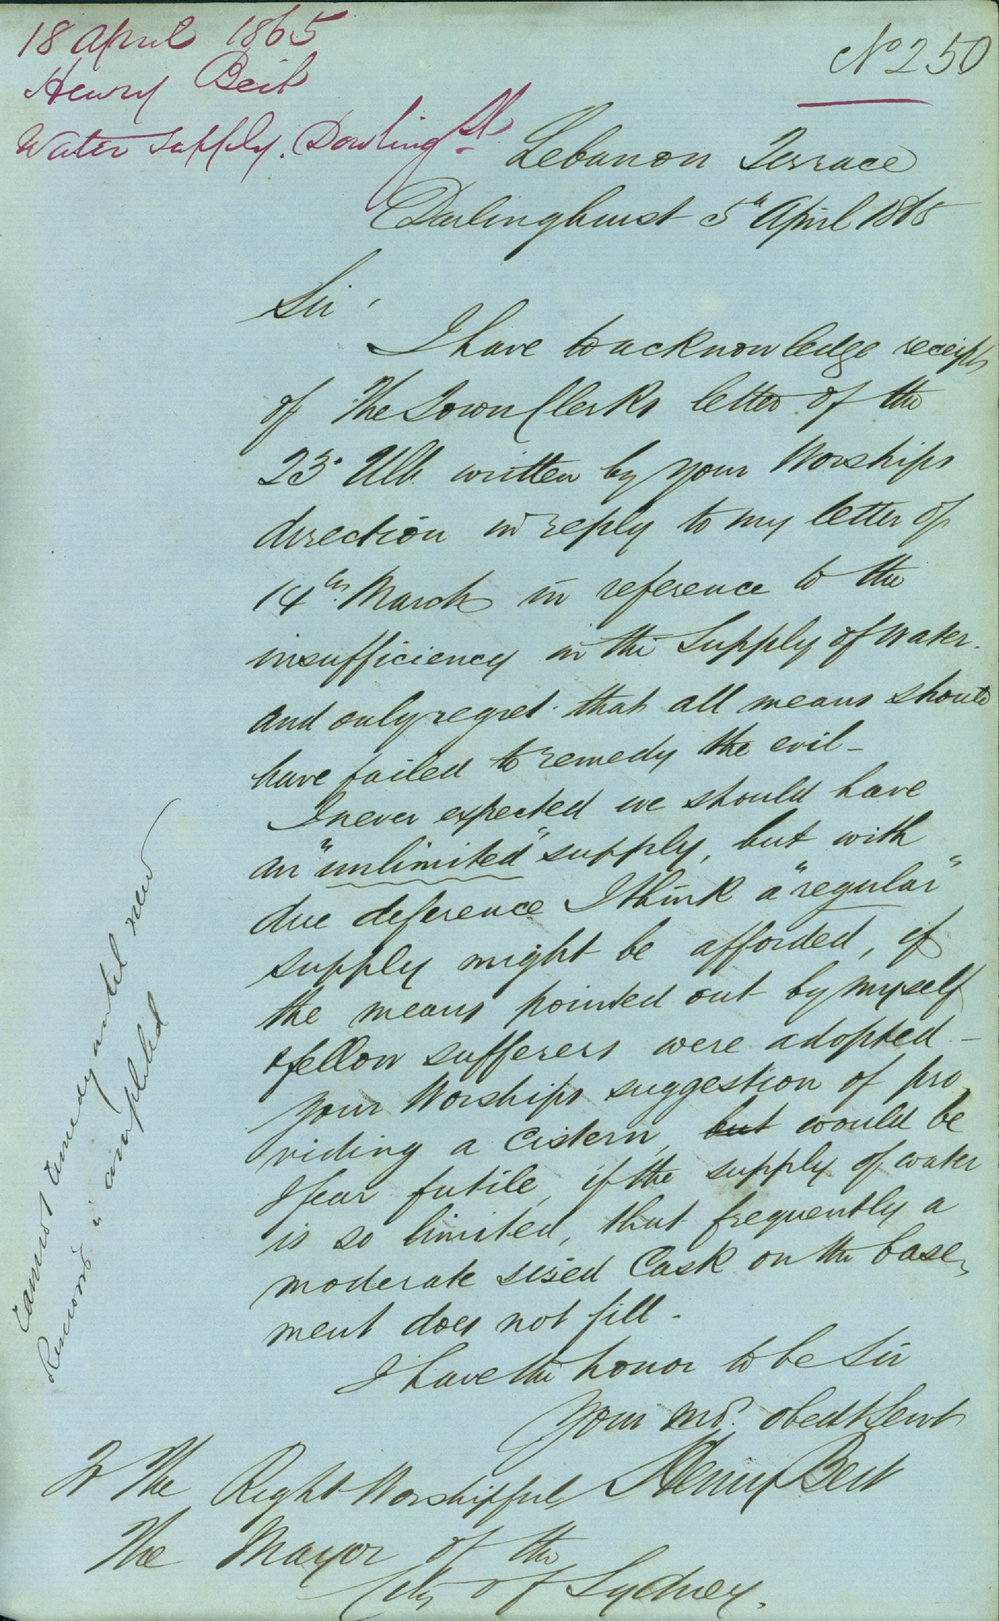 18 April 1865
Henry Beit
Water supply. Dowling St.
No 250
Lebanon Terrace
Darlinghurst 5th April 1865
Sir,
I have to acknowledge receipt
of The Town Clerks letter of the
23d Ult. written by your Worships
direction in reply to my letter of
14th March in reference to the
insufficiency in the Supply of Water.
and only regret that all means should
have failed to remedy the evil –
I never expected we should have
an "unlimited" supply, but with
due deference I think a "regular"
supply might be afforded, if
the means pointed out by myself
& fellow sufferers were adopted –
your Worships suggestion of pro
viding a Cistern, but would be
I fear futile, if the supply of water
is so limited, that frequently a
moderate sized Cask on the base
ment does not fill.
I have the honor to be Sir
Your Mo. obedt Servt
Henry Beit
To The Right Worshipful
The Mayor of the
City of Sydney.
Cannot remedy until new
completed